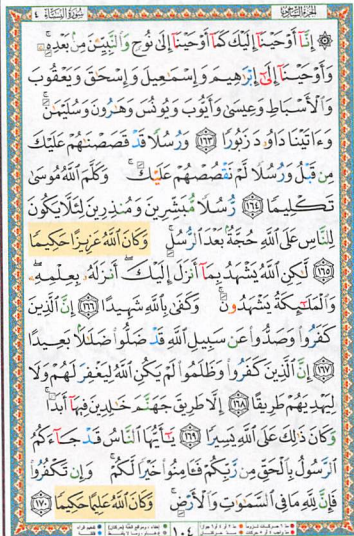 سورة النساء ٤ الجزء السادس
۞ إِنَّآ أَوْحَيْنَآ إِلَيْكَ كَمَآ أَوْحَيْنَآ إِلَىٰ نُوحٍ وَٱلنَّبِيِّـۧنَ مِنۢ بَعْدِهِۦ ۚ
وَأَوْحَيْنَآ إِلَىٰٓ إِبْرَٰهِيمَ وَإِسْمَٰعِيلَ وَإِسْحَٰقَ وَيَعْقُوبَ
وَٱلْأَسْبَاطِ وَعِيسَىٰ وَأَيُّوبَ وَيُونُسَ وَهَٰرُونَ وَسُلَيْمَٰنَ ۚ
وَءَاتَيْنَا دَاوُۥدَ زَبُورًا ١٦٣ وَرُسُلًا قَدْ قَصَصْنَٰهُمْ عَلَيْكَ
مِن قَبْلُ وَرُسُلًا لَّمْ نَقْصُصْهُمْ عَلَيْكَ ۚ وَكَلَّمَ ٱللَّهُ مُوسَىٰ
تَكْلِيمًا ١٦٤ رُّسُلًا مُّبَشِّرِينَ وَمُنذِرِينَ لِئَلَّا يَكُونَ
لِلنَّاسِ عَلَى ٱللَّهِ حُجَّةٌۢ بَعْدَ ٱلرُّسُلِ ۚ وَكَانَ ٱللَّهُ عَزِيزًا حَكِيمًا
١٦٥ لَّٰكِنِ ٱللَّهُ يَشْهَدُ بِمَآ أَنزَلَ إِلَيْكَ ۖ أَنزَلَهُۥ بِعِلْمِهِۦ ۖ
وَٱلْمَلَٰٓئِكَةُ يَشْهَدُونَ ۚ وَكَفَىٰ بِٱللَّهِ شَهِيدًا ١٦٦ إِنَّ ٱلَّذِينَ
كَفَرُوا۟ وَصَدُّوا۟ عَن سَبِيلِ ٱللَّهِ قَدْ ضَلُّوا۟ ضَلَٰلًۢا بَعِيدًا
١٦٧ إِنَّ ٱلَّذِينَ كَفَرُوا۟ وَظَلَمُوا۟ لَمْ يَكُنِ ٱللَّهُ لِيَغْفِرَ لَهُمْ وَلَا
لِيَهْدِيَهُمْ طَرِيقًا ١٦٨ إِلَّا طَرِيقَ جَهَنَّمَ خَٰلِدِينَ فِيهَآ أَبَدًا ۚ
وَكَانَ ذَٰلِكَ عَلَى ٱللَّهِ يَسِيرًا ١٦٩ يَٰٓأَيُّهَا ٱلنَّاسُ قَدْ جَآءَكُمُ
ٱلرَّسُولُ بِٱلْحَقِّ مِن رَّبِّكُمْ فَـَٔامِنُوا۟ خَيْرًا لَّكُمْ ۚ وَإِن تَكْفُرُوا۟
فَإِنَّ لِلَّهِ مَا فِى ٱلسَّمَٰوَٰتِ وَٱلْأَرْضِ ۚ وَكَانَ ٱللَّهُ عَلِيمًا حَكِيمًا ١٧٠
١٠٤